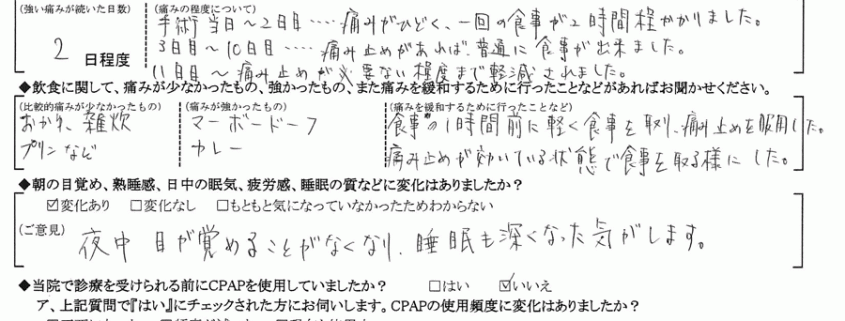 (強い痛みが続いた日数) (痛みの程度について)
手術当日～2日目‥‥痛みがひどく、一回の食事が2時間程かかりました。
3日目～10日目‥‥痛み止めがあれば、普通に食事が出来ました。
2 日程度
11日目～痛み止めが必要ない程度まで軽減されました。
◆飲食に関して、痛みが少なかったもの、強かったもの、また痛みを緩和するために行ったことなどがあればお聞かせください。
(比較的痛みが少なかったもの) (痛みが強かったもの) (痛みを緩和するために行ったことなど)
おかゆ、雑炊 マーボードーフ 食事の1時間前に軽く食事を取り、痛み止めを服用した。
プリンなど カレー 痛み止めが効いている状態で食事を取る様にした。
◆朝の目覚め、熟睡感、日中の眠気、疲労感、睡眠の質などに変化はありましたか？
☑変化あり □変化なし □もともと気になっていなかったためわからない
(ご意見) 夜中目が覚めることがなくなり、睡眠も深くなった気がします。
◆当院で診療を受けられる前にCPAPを使用していましたか？ □はい ☑いいえ
ア、上記質問で『はい』にチェックされた方にお伺いします。CPAPの使用頻度に変化はありましたか？